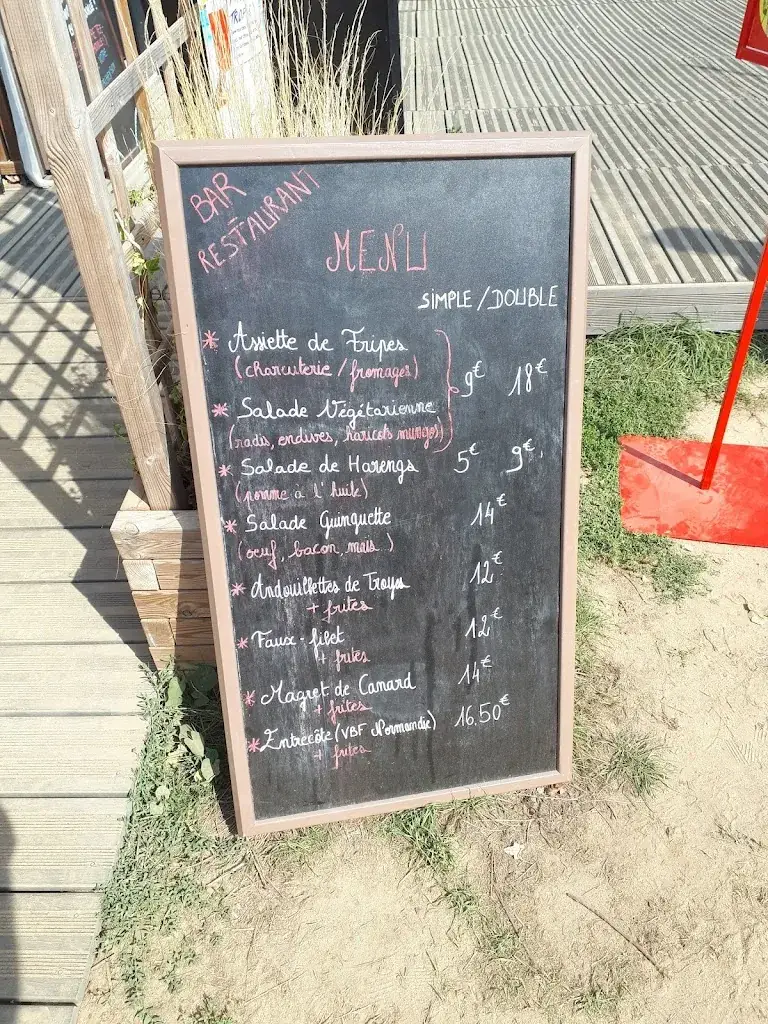 BAR
RESTAURANT
MENU
SIMPLE / DOUBLE
* Assiette de Fripes
(charcuterie / fromages)
9€ 18€
* Salade Végétarienne
(radis, endives, haricots mungo)
* Salade de Harengs 5€ 9€
(pomme à l'huile)
* Salade Guinguette 14€
(oeuf, bacon, maïs)
* Andouillettes de Troyes 12€
+ frites
* Faux-filet 12€
+ frites
* Magret de Canard 14€
+ frites
* Entrecôte (VBF Normandie) 16.50€
+ frites